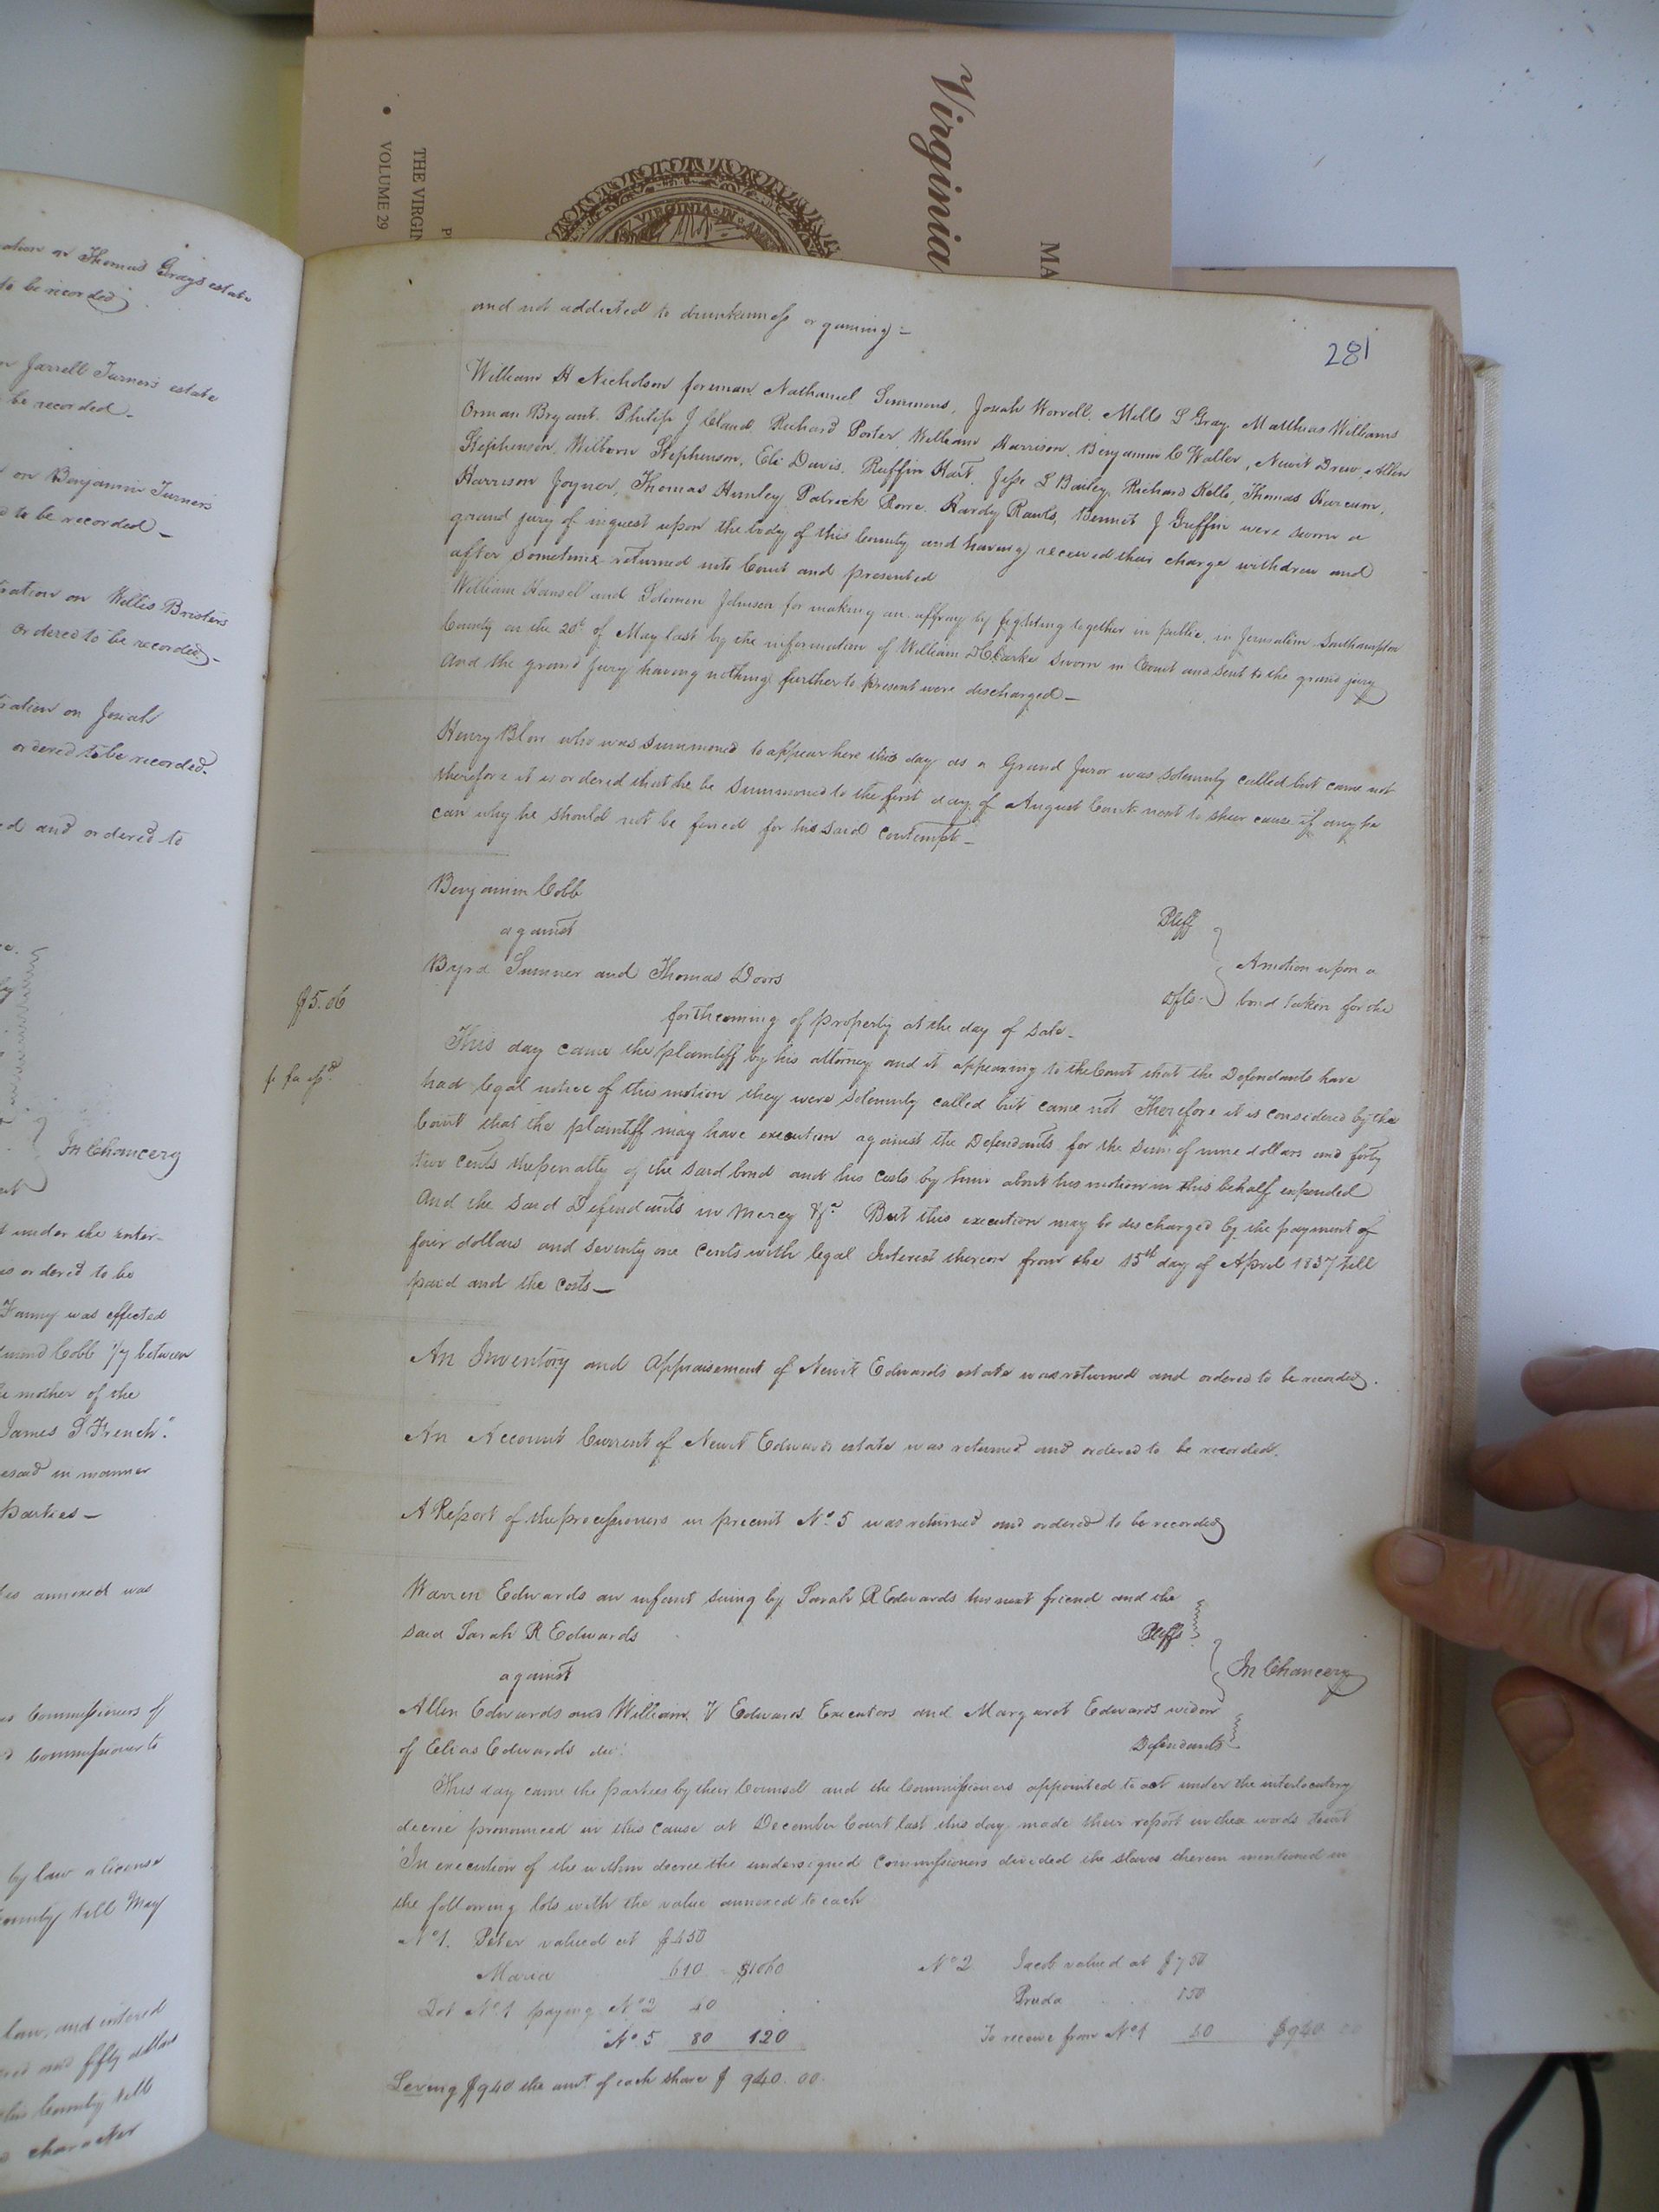 Virginia
MA
THE VIRGIN
VOLUME 29
VIRGINIA
281
ation on Thomas Grays estate
to be recorded
Jarrell Turner's estate
be recorded -
on Benjamin Turners
to be recorded -
ration on Willis Bristers
ordered to be recorded -
ration on Josiah
ordered to be recorded.
ed and ordered to
In Chancery
under the inter-
ordered to be
Fanny was effected
Cobb 1/7 between
mother of the
James S French"
in manner
parties -
annexed was
Commissioners of
Commissioner to
by law a license
County till May
law, and entered
and fifty dollars
County till
character
and not addicted to drunkenness or gaming =
William H Nicholson foreman, Nathaniel Simmons, Josiah Worrell, Mills S Gray, Matthias Williams
Orman Bryant, Philip J Claud, Richard Porter William Harrison, Benjamin C Waller, Newit Drew, Allen
Stephenson, Wilborn Stephenson, Eli Davis, Ruffin Hart, Jesse S Bailey, Richard Kello, Thomas
Harrison Joyner, Thomas Hunley, Patrick Hardy Rawls, Bennet J Griffin were sworn a
grand jury of inquest upon the body of this County and having received their charge withdrew and
after sometime returned into Court and presented
William and Solomon Johnson for making an affray by fighting together in public, in Jerusalem Southampton
County on the 20th of May last by the information of William H Clarke sworn in Court and sent to the grand jury
And the grand jury having nothing further to present were discharged -
Henry Blow who was summoned to appear here this day as a Grand Juror was solemnly called but came not
therefore it is ordered that he be summoned to the first day of August Court next to shew cause if any he
can why he should not be fined for his said contempt -
Benjamin Cobb Pltff
against
Byrd Sumner and Thomas Doors Dfts A motion upon a bond taken for the
$5.06
forthcoming of property at the day of sale -
This day came the plaintiff by his attorney and it appearing to the Court that the Defendants have
fi fa
had legal notice of this motion they were solemnly called but came not Therefore it is considered by the
Court that the plaintiff may have execution against the Defendants for the sum of nine dollars and forty
two cents the penalty of the said bond and his costs by him about his motion in this behalf expended
And the said Defendants in mercy &c. But this execution may be discharged by the payment of
four dollars and seventy one cents with legal Interest thereon from the 15th day of April 1837 till
paid and the costs -
An Inventory and Appraisement of Newit Edwards estate was returned and ordered to be recorded.
An Account Current of Newit Edwards estate was returned and ordered to be recorded.
A Report of the processioners in precinct No. 5 was returned and ordered to be recorded
Warren Edwards an infant suing by Sarah R Edwards her next friend and the
said Sarah R Edwards Pltffs
against In Chancery
Allen Edwards and William V Edwards Executors and Margaret Edwards widow
of Elias Edwards dec. Defendants
This day came the parties by their Counsel and the Commissioners appointed to act under the interlocutory
decree pronounced in this cause at December Court last this day made their report in these words towit
"In execution of the within decree the undersigned Commissioners divided the slaves therein mentioned in
the following lots with the value annexed to each
No 1. Peter valued at $450 No 2 Jack valued at $750
Maria 610 $1060 Pruda 150
Lot No 1 paying No 2 40 To receive from No 1 40 $940.00
No 5 80 120
Leving $940 the amt of each share $940.00